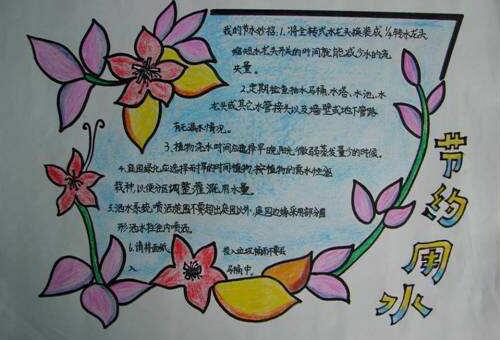 我的节水妙招:1.将全转式水龙头换装成1/4转水龙头
缩短水龙头开关的时间就能减少水的流
失量。
2.定期检查抽水马桶、水塔、水池、水
龙头或其它水管接头以及墙壁或地下管路
有无漏水情况。
3.植物浇水时间应选择早晚阳光微弱蒸发量少的时候。
4.庭园绿化应选择耐旱的植物
栽种,以便分区调整灌溉用水量。
5.洒水系统,喷洒范围不要超出庭园以外,庭园边缘采用部分圆
形洒水往内喷洒。
6.请将面纸 投入垃圾桶而不要丢
入 马桶中。
节约用水